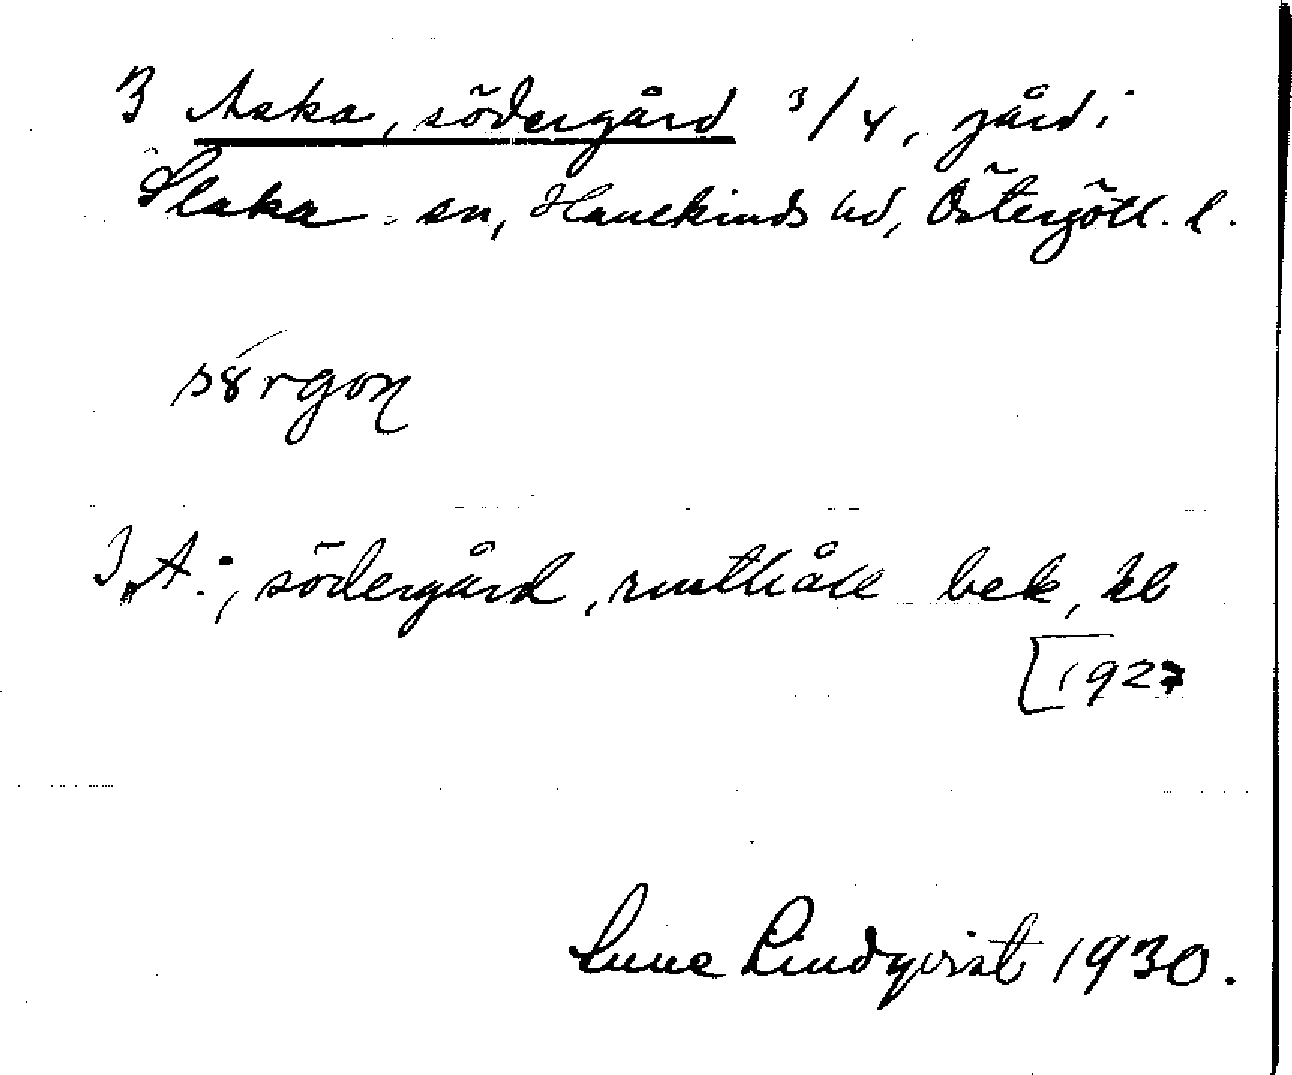 3 Aska, södergård 3/4, gård i
Slaka sn, Hanekinds hd, Östergötl. l.
sörgoɳ
3 A:, södergård, rusthåll bek, kl
[1927
Sune Lindqvist 1930.